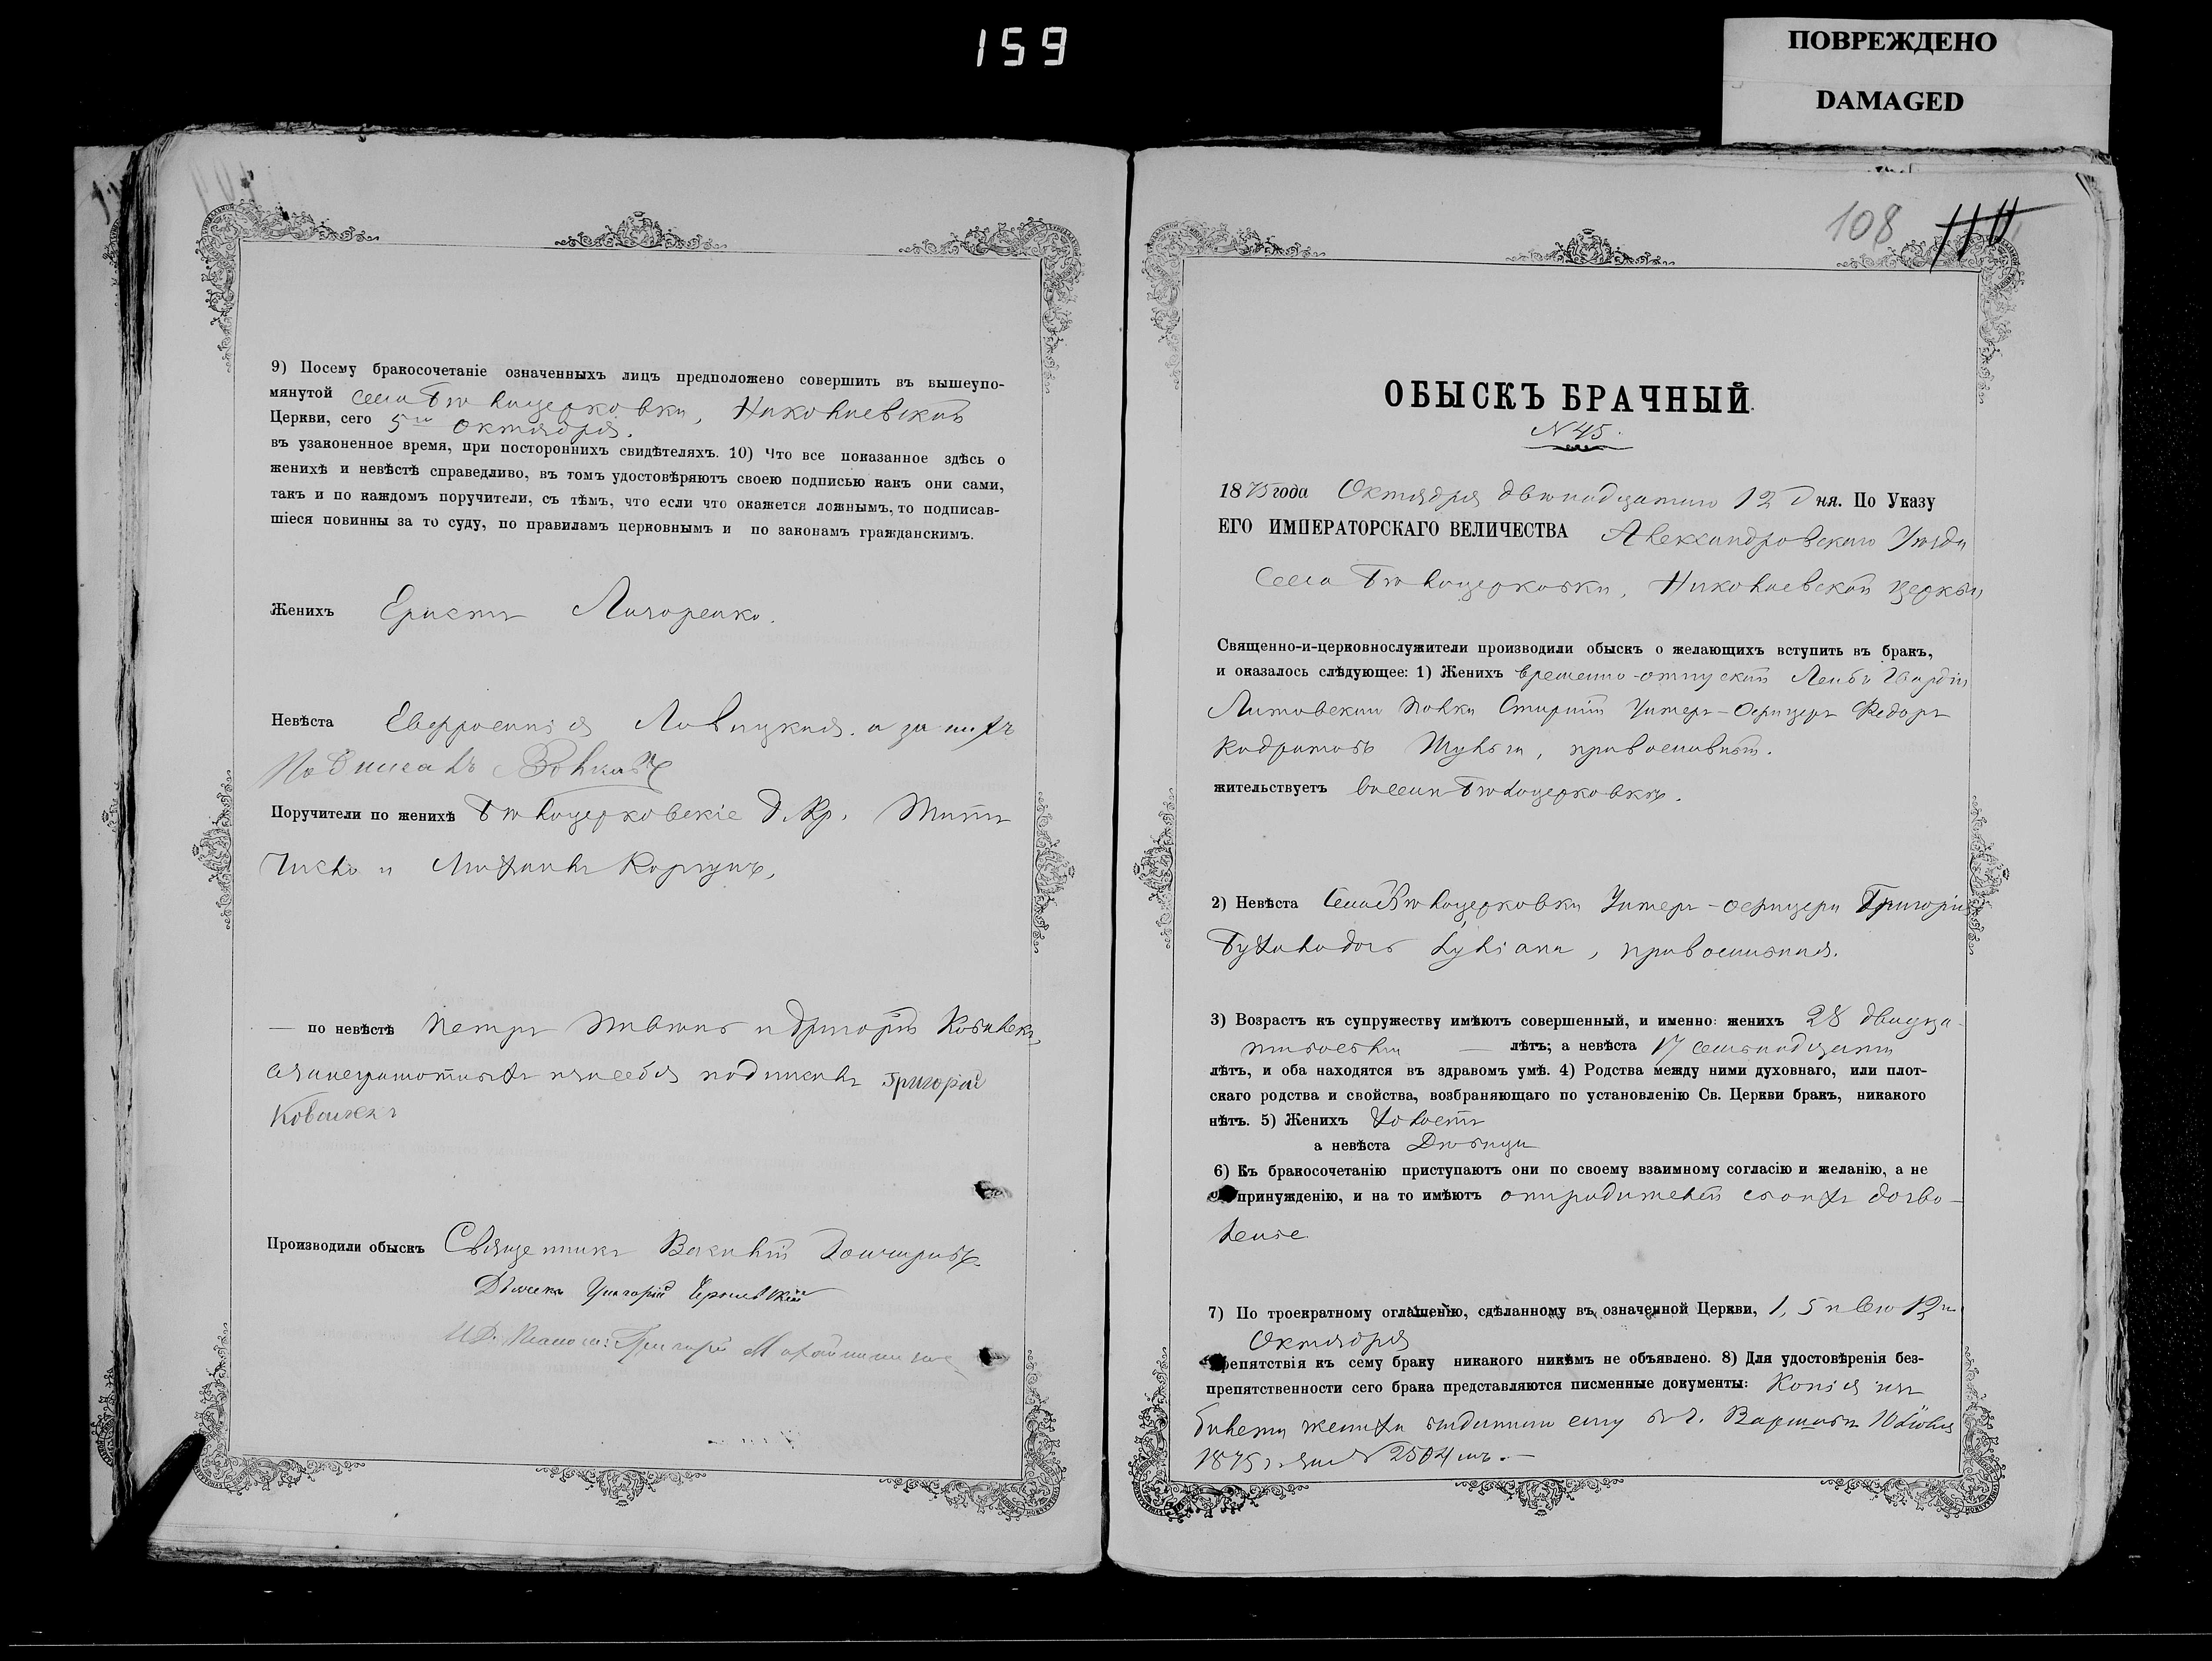 159
ПОВРЕЖДЕНО
DAMAGED
9) Посему бракосочетаніе означенныхъ лицъ предположено совершить въ вышеупо-
мянутой села Бѣлоцерковки, Николаевской
Церкви, сего 5го Октября.
въ узаконенное время, при постороннихъ свидѣтеляхъ. 10) Что все показанное здѣсь о
женихѣ и невѣстѣ справедливо, въ томъ удостовѣряютъ своею подписью какъ они сами,
такъ и по каждомъ поручители, съ тѣмъ, что если что окажется ложнымъ, то подписав-
шіеся повинны за то суду, по правиламъ церковнымъ и по законамъ гражданскимъ.
Женихъ
Невѣста а за нихъ
Подписалъ
Поручители по женихѣ Бѣлоцерковскіе Титъ
и Корнунъ,
— по невѣстѣ Петръ и Григорій
а за неграмотныхъ и за себя подписалъ Григорій
Производили обыскъ Священникъ Василій
Дьячекъ Григорій
И.Д. Псалом: Григорій
108 110
ОБЫСКЪ БРАЧНЫЙ.
N 45.
1875 года Октября двѣнадцатаго 12 дня. По Указу
ЕГО ИМПЕРАТОРСКАГО ВЕЛИЧЕСТВА Александровскаго Уѣзда
Села Бѣлоцерковки, Николаевской церкви
Священно-и-церковнослужители производили обыскъ о желающихъ вступить въ бракъ,
и оказалось слѣдующее: 1) Женихъ временно-отпускной Лейбъ Гвардіи
Литовскаго Полка Старшій Унтеръ-Офицеръ Федоръ
Кодратовъ Шульга, православный.
жительствуетъ въ селѣ Бѣлоцерковкѣ.
2) Невѣста Села Бѣлоцерковки Унтеръ-офицера Григорія
дочь Іуліана, православная.
3) Возрастъ къ супружеству имѣютъ совершенный, и именно: женихъ 28 двадца-
тивосьми — лѣтъ; а невѣста 17 семьнадцати
лѣтъ, и оба находятся въ здравомъ умѣ. 4) Родства между ними духовнаго, или плот-
скаго родства и свойства, возбраняющаго по установленію Св. Церкви бракъ, никакого
нѣтъ. 5) Женихъ Холостъ
а невѣста Дѣвица
6) Къ бракосочетанію приступаютъ они по своему взаимному согласію и желанію, а не
принужденію, и на то имѣютъ отъ родителей своихъ дозво-
леніе.
7) По троекратному оглашенію, сдѣланному въ означенной Церкви, 1, 5 и 12го
Октября
препятствія къ сему браку никакого никѣмъ не объявлено. 8) Для удостовѣренія без-
препятственности сего брака представляются писменные документы: Копія изъ
билета жениха выданнаго ему въ г. Варшавѣ 10 Іюля
1875 г. за N 2504мъ. —